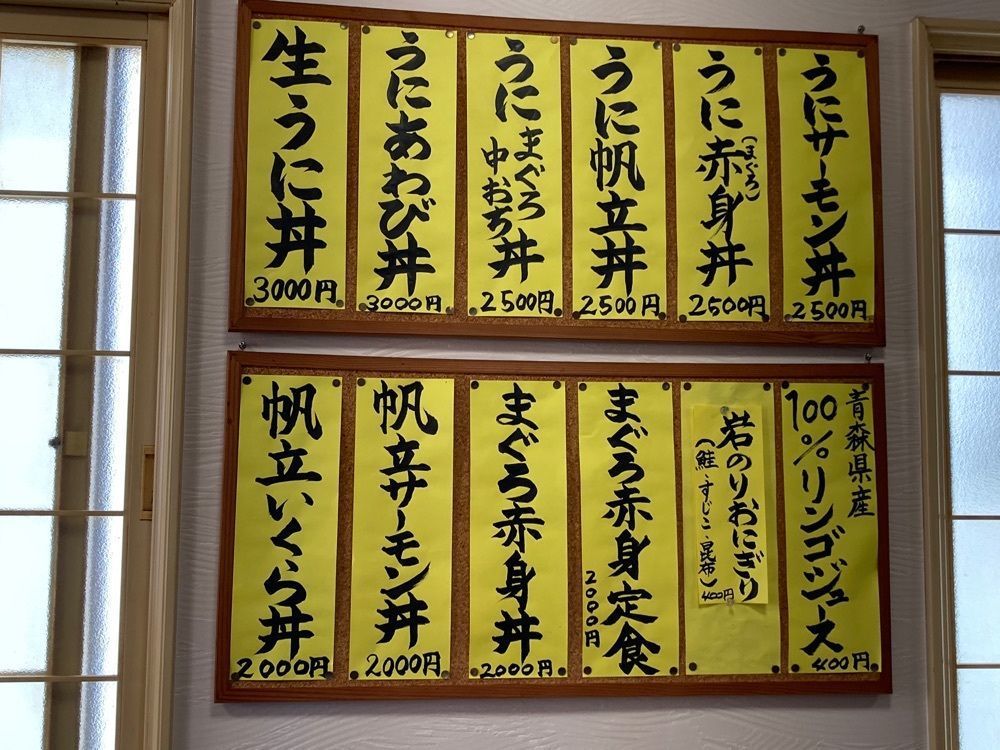 うにサーモン丼
2500円
うに赤身丼
(まぐろ)
2500円
うに帆立丼
2500円
うにまぐろ
中おち丼
2500円
うにあわび丼
3000円
生うに丼
3000円
青森県産
100%リンゴジュース
400円
岩のりおにぎり
(鮭・すじこ・昆布)
400円
まぐろ赤身定食
2000円
まぐろ赤身丼
2000円
帆立サーモン丼
2000円
帆立いくら丼
2000円